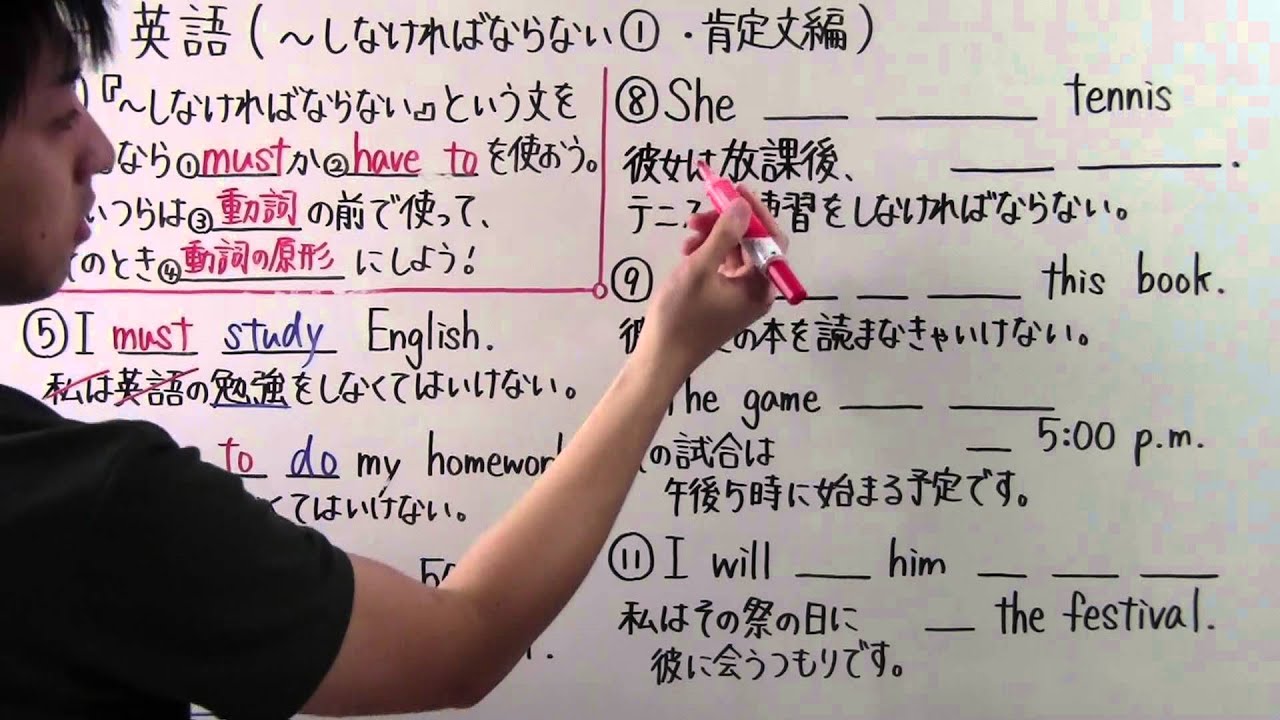 英語(～しなければならない①・肯定文編)
『～しなければならない』という文を
なら①mustか②have toを使おう。
いつらは③動詞の前で使って、
のとき④動詞の原形にしよう!
⑤I must study English.
私は英語の勉強をしなくてはいけない。
to do my homework
くてはいけない。
⑧She ___ ___ tennis
彼女は放課後、 ___ ___.
テニス 練習をしなければならない。
⑨ ___ ___ ___ this book.
の本を読まなきゃいけない。
The game ___ ___
の試合は __ 5:00 p.m.
午後5時に始まる予定です。
⑪I will ___ him __ ___ ___
私はその祭の日に __ the festival.
彼に会うつもりです。